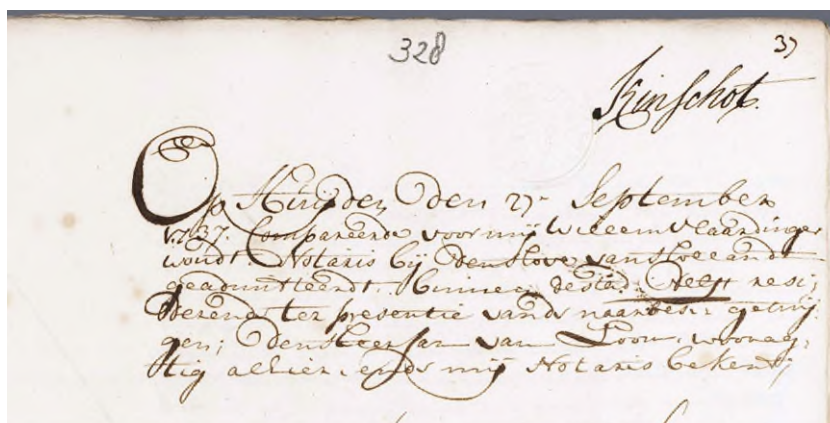 328
37
Kinschot.
Op Huijden den 27e September
1737. Compareerde voor mij Willem Vlaardinger
woudt Notaris bij den Hove van Hollandt
geadmitteerdt binnen de stad Delft resi;
derende ter presentie vande naarbes: getuij
gen; den Heer Jan van Loon, woonag;
tig alhier, ende mij Notaris bekend;